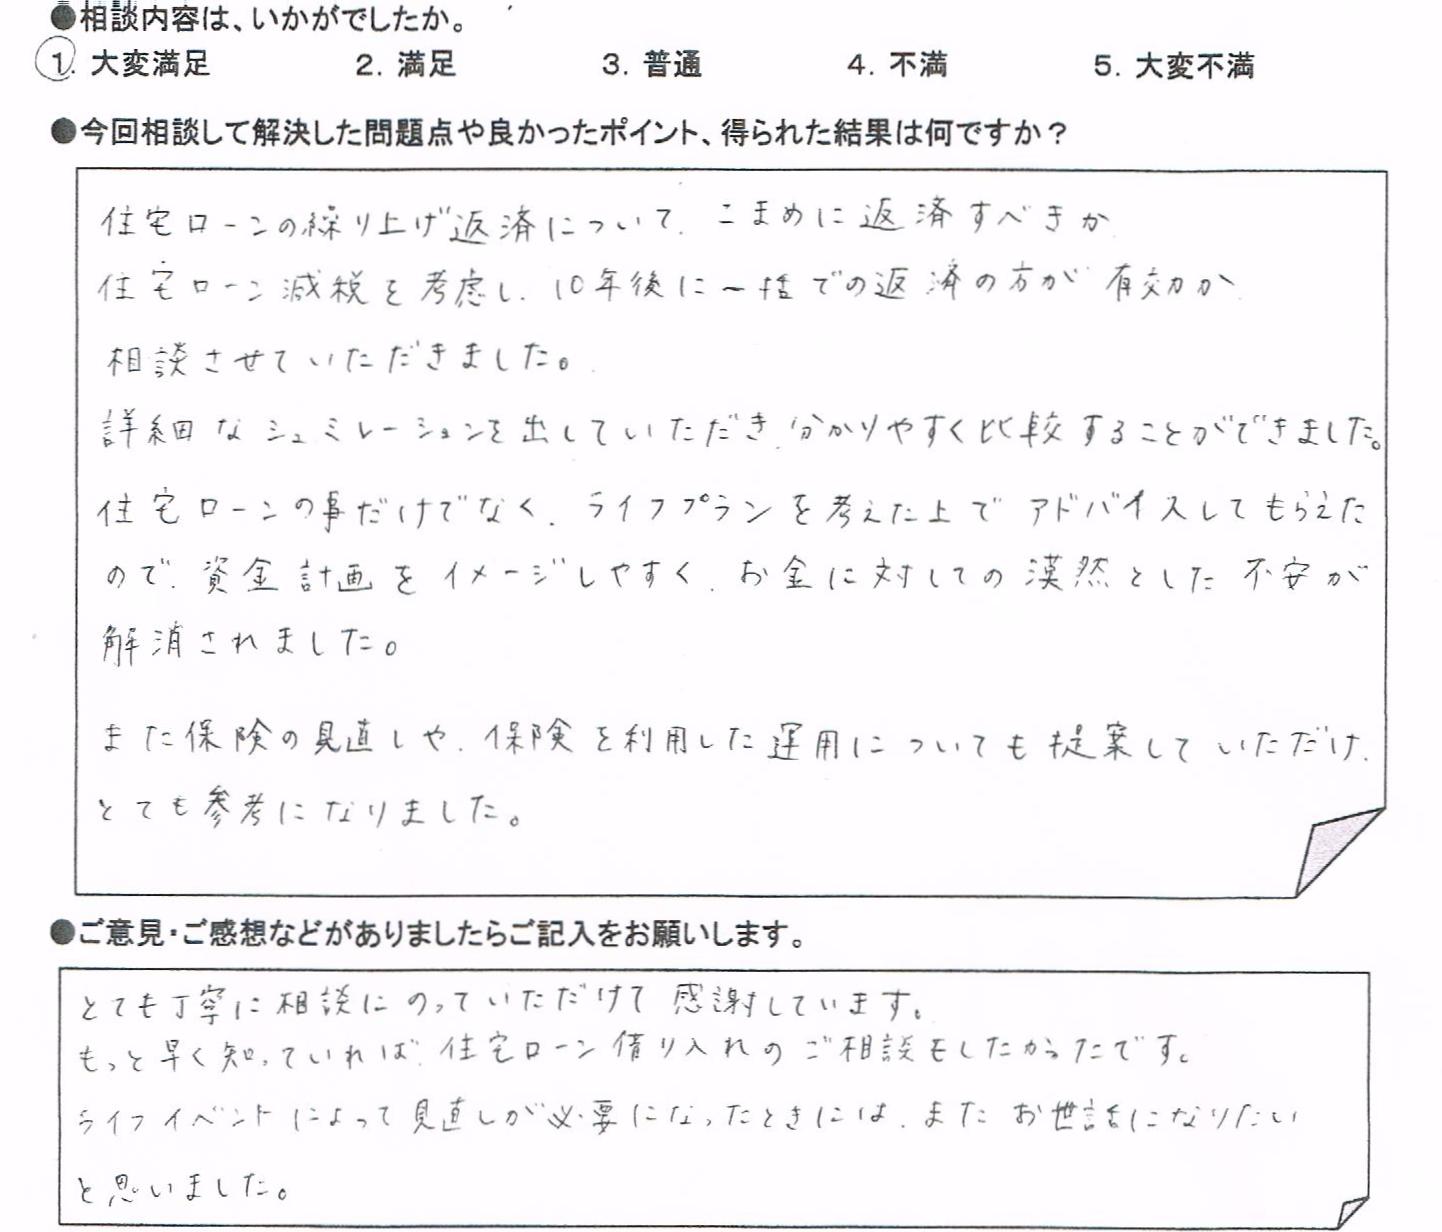 ●相談内容は、いかがでしたか。
1. 大変満足 2. 満足 3. 普通 4. 不満 5. 大変不満
●今回相談して解決した問題点や良かったポイント、得られた結果は何ですか？
住宅ローンの繰り上げ返済について、こまめに返済すべきか
住宅ローン減税を考慮し、10年後に一括での返済の方が有効か、
相談させていただきました。
詳細なシュミレーションを出していただき、分かりやすく比較することができました。
住宅ローンの事だけでなく、ライフプランを考えた上でアドバイスしてもらえた
ので、資金計画をイメージしやすく、お金に対しての漠然とした不安が
解消されました。
また保険の見直しや、保険を利用した運用についても提案していただけ、
とても参考になりました。
●ご意見・ご感想などがありましたらご記入をお願いします。
とても丁寧に相談にのっていただけて感謝しています。
もっと早く知っていれば、住宅ローン借り入れのご相談もしたかったです。
ライフイベントによって見直しが必要になったときには、またお世話になりたい
と思いました。